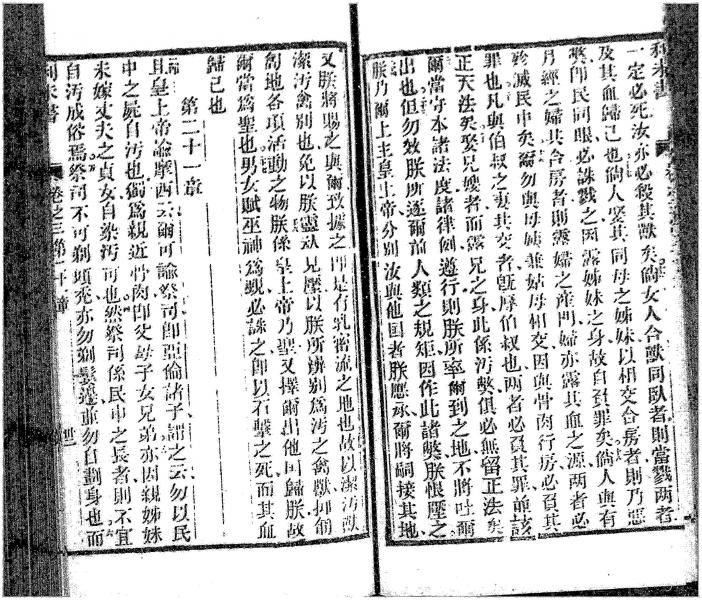 利未書
一定必死汝亦必殺其獸矣倘女人合獸同臥者則當戮兩者
及其血歸己也倘人娶其同母之姊妹以相交合房者則乃惡
獘即民同眼必誅戮之因露姊妹之身故自負罪矣倘人與有
月經之婦共合房者則露婦之產門婦亦露其血之源兩者必
於滅民中矣爾勿與母姊兼姑母相交因與骨肉行房必負其
罪也凡與伯叔之妻共交者旣辱伯叔也兩者必負其罪而該
正天法矣娶兄嫂者而露兄之身此係汚獘俱必無留正法矣
爾當守本諸法度諸律例遵行則朕所率爾到之地不將吐爾
出也但勿效朕所逐爾前人類之規矩因作此諸獘朕恨壓之
朕乃爾上主皇上帝分別汝與他国者朕應承爾將嗣接其地
又朕將賜之與爾致據之即是有乳蜜流之地也故以潔汚獸
潔汚禽別也免以朕靈
匐地各項活動之物朕係皇上帝乃聖又擇爾出他囘歸朕故
爾當爲聖也男女賦巫神爲覡必誅之即以石擊之死而其血
歸己也
第二十一章
且皇上帝諭摩西云爾可諭祭司即亞倫諸子謂之云勿以民
中之屍自汚也獨爲親近骨肉即父母子女兄弟亦因親姊妹
未嫁丈夫之貞女自染汚可也然祭司係民中之長者則不宜
自汚成俗焉祭司不可剃頭禿亦勿剃鬚邊並勿自劃身也而
利未書
卷之三第二十章